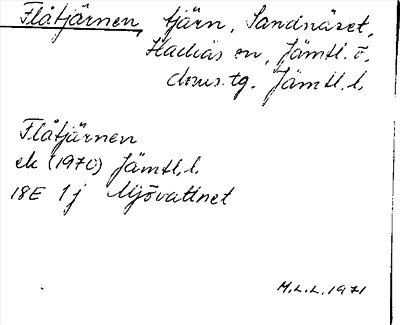 Flåtjärnen, tjärn, Sandnäset,
Hackås sn, Jämtl. ö.
doms.tg. Jämtl. l.
Flåtjärnen
ek (1970) Jämtl. l.
18E 1j Mjövattnet
M.L.L. 1971